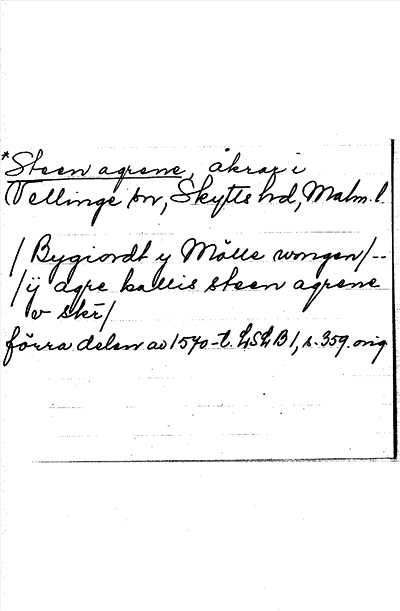 *Steen agrene, åkrar i
Vellinge sn, Skytts hd, Malm. l.
/ Bygiordt y Mölle wongen / --
/ ij agre kallis steen agrene
v skr /
förra delen av 1570-t. LSLB 1, s. 359. orig